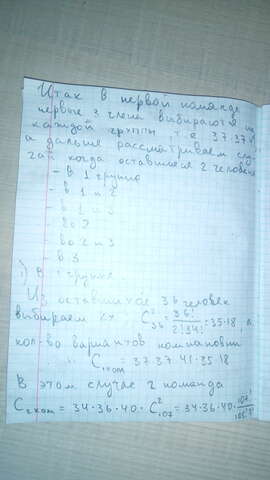 Итак в первой команде
первые 3 члена выбираются из
каждой группы т.е 37·37·41
а дальше рассматриваем слу-
чаи когда оставшиеся 2 человека
- в 1 группе
- в 1 и 2
- в 1 и
- во 2
- во 2 и 3
- в 3
1) В группе
Из оставшихся 36 человек
выбираем 2х C²₃₆ = 36!/2!34! = 35·18 а
кол-во вариантов
C₁ком = 37·37·41·35·18
В этом случае 2 команда
C₂ком = 34·36·40·C²₁₀₇ = 34·36·40·107!/105!2!